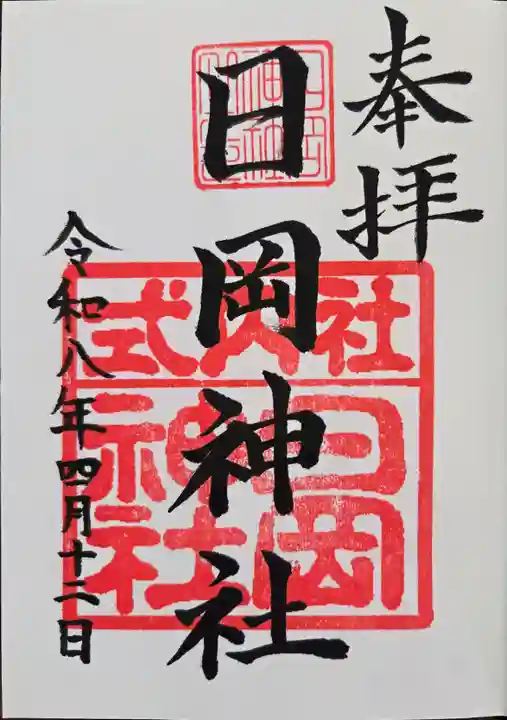 奉拝
日岡神社
令和八年四月十二日
式内社
日岡
神社